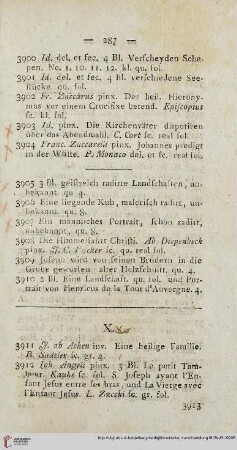 287
3900 Id. del. et sec. 4 Bl. Verscheyden Schepen. No. 1. 10. 11. 12. kl. qu. fol.
3901 Id. del. et sec. 4 Bl. verschiedene Seestücke qu. fol.
3902 Fr. Zuccarus pinx. Der heil. Hieronymus vor einem Crucifixe betend. Episcopius sc. kl. fol.
3903 Id. pinx. Die Kirchenväter disputiren über das Abendmahl. C. Cort sc. real fol.
3904 Franc. Zuccarelli pinx. Johannes predigt in der Wüste. P. Monaco del. et sc. real fol.
3905 3 Bl. geistreich radirte Landschaften, unbekannt qu. 4.
3906 Eine liegende Kuh, malerisch radirt, unbekannt, qu. 8.
3907 Ein männliches Portrait, schön radirt, unbekannt, gr. 8.
3908 Die Himmelfahrt Christi. Ab. Diepenbeck pinx. sc. qu. real fol.
3909 Joseph wird von seinen Brüdern in die Grube geworfen alter Holzschnitt, qu. 4.
3910 2 Bl. Eine Landschaft. qu. fol. und Portrait von Henricus de la Tour d'Auvergne. 4.
X.
3911 J. ab Achen inv. Eine heilige Familie. R. Sadeler sc. gr. 4.
3912 Joh. Angeli pinx. 3 Bl. Le petit Tambour. sc. fol. S. Joseph ayant l'Enfant Jesus entre ses bras, und La Vierge avec l'Enfant Jesus. L. Zucchi sc. gr. fol.
3913